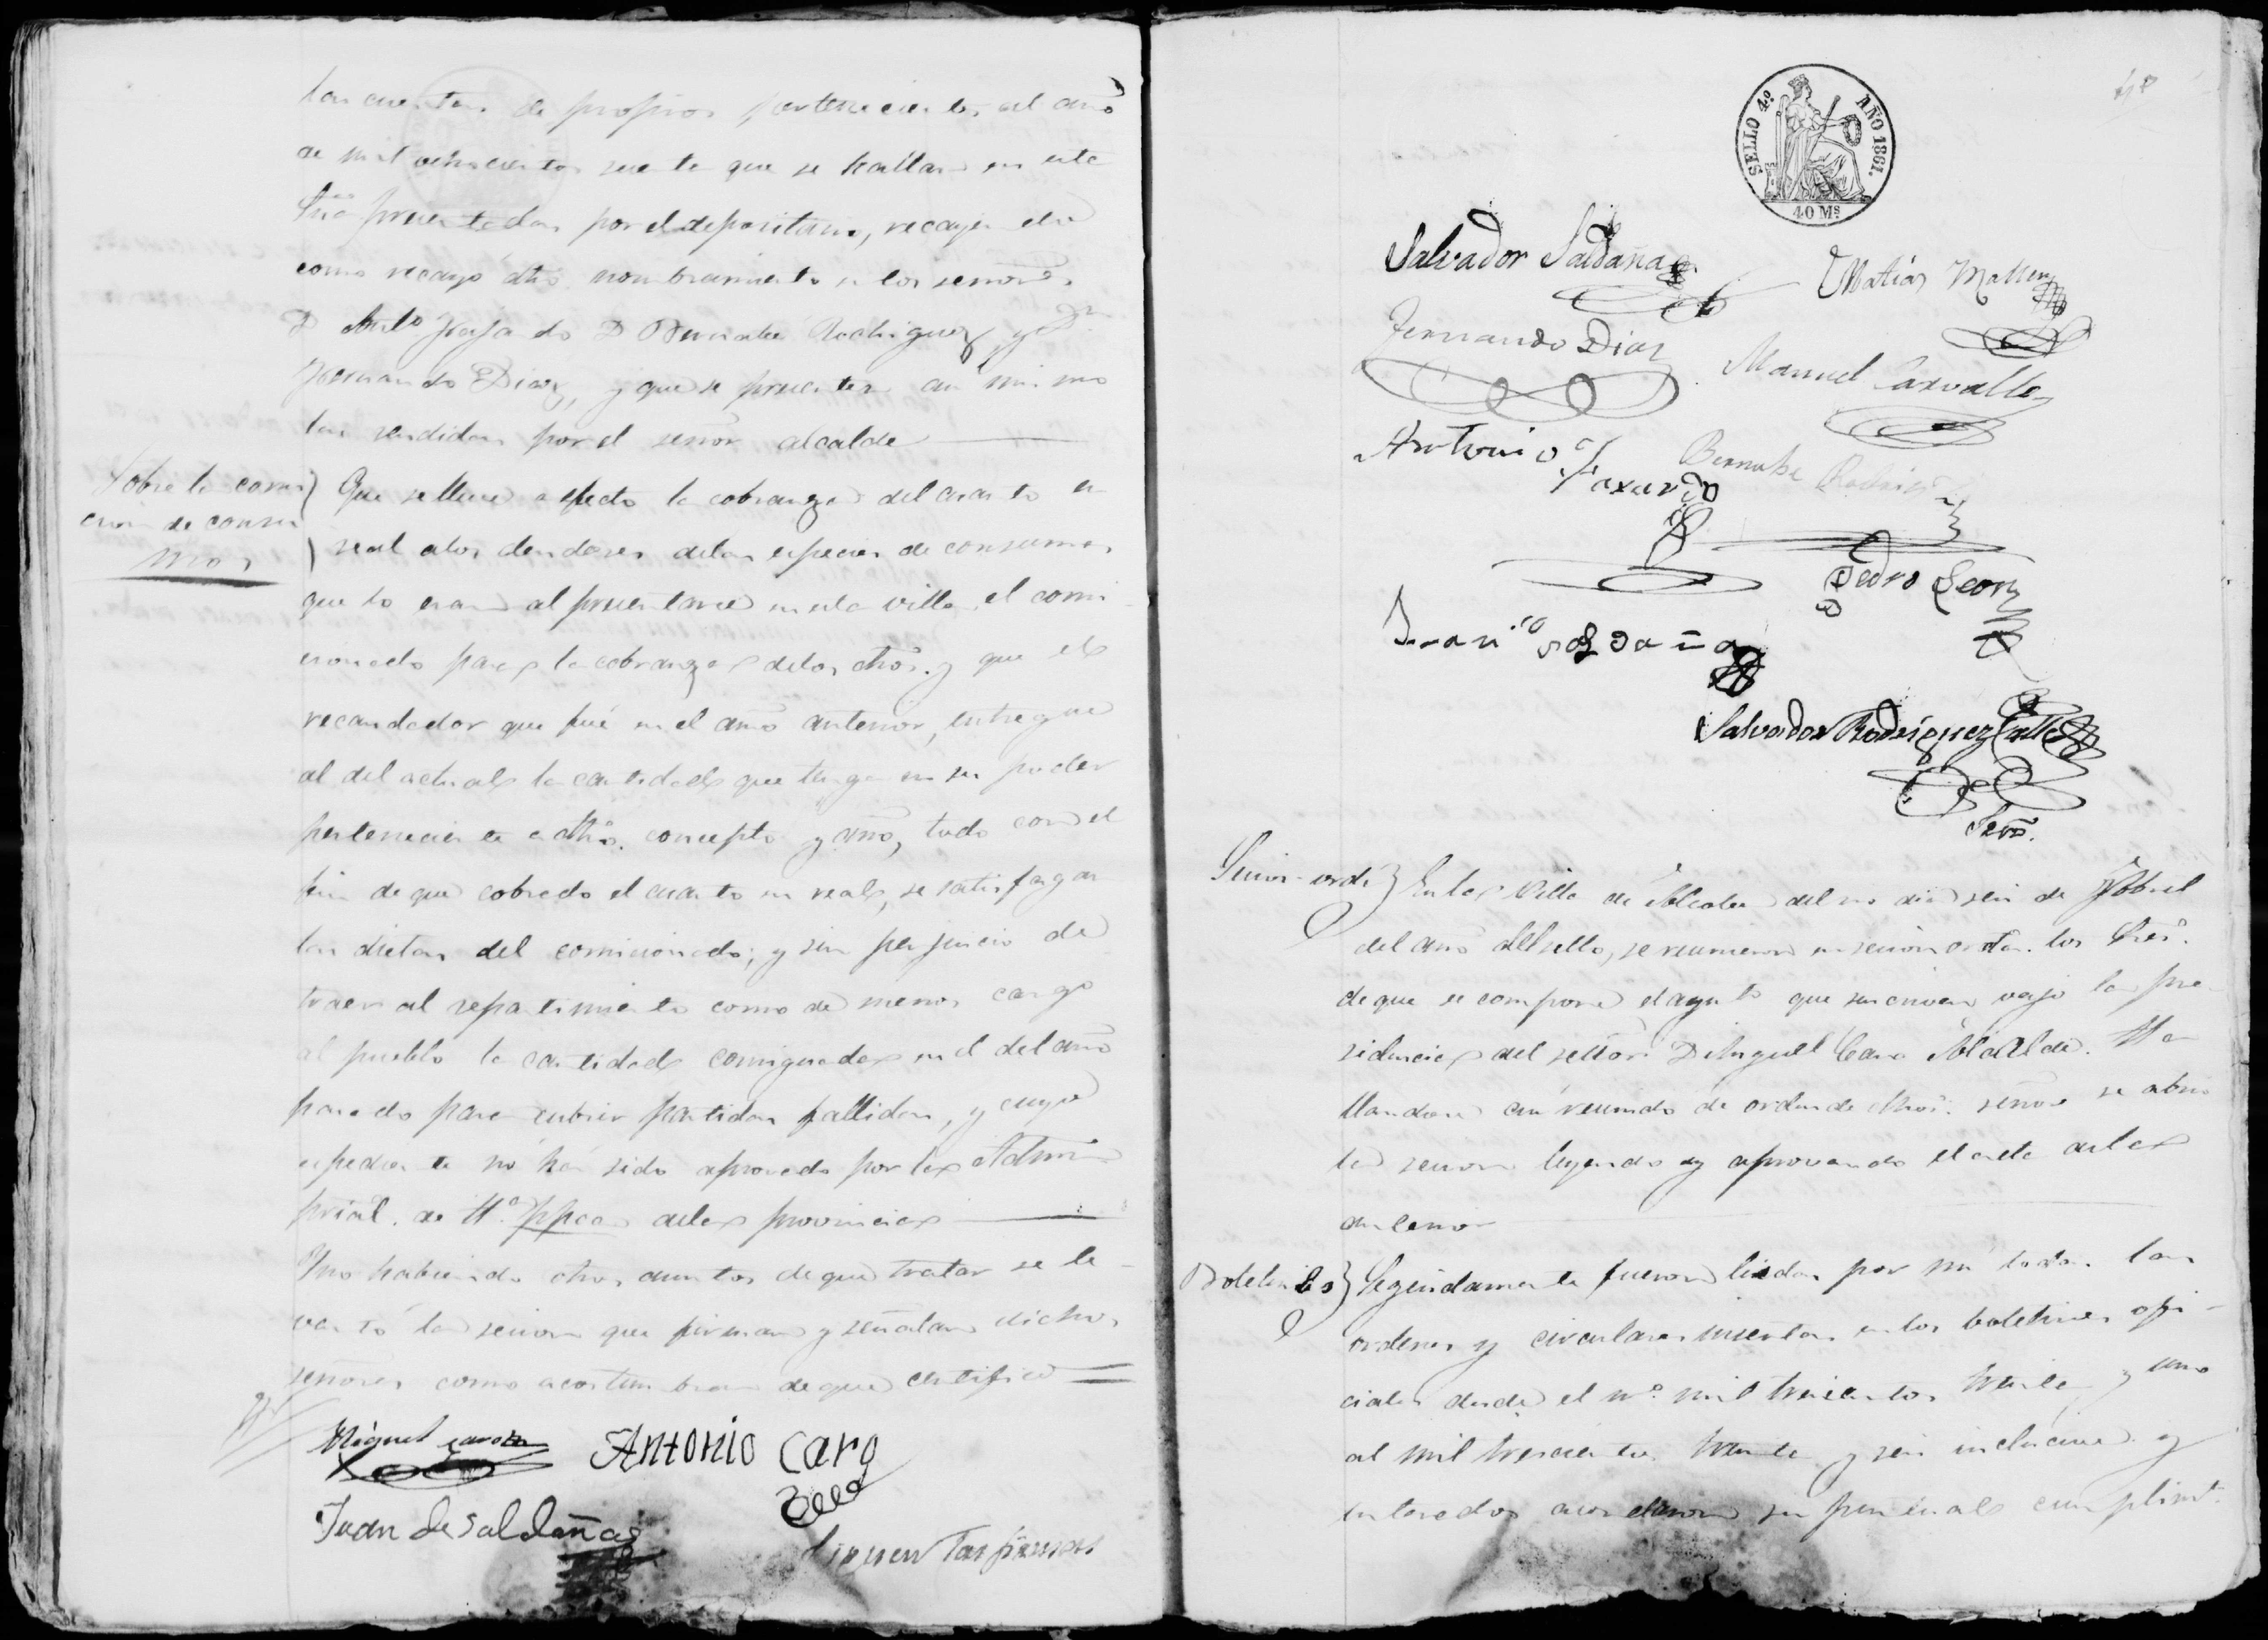 las cuentas de propios pertenecientes al año
de mil ochocientos sesenta que se hallan en esta
Sria presentadas por el depositario, recayendo
como recayó dho. nombramiento en los señores
D Antº Faxardo D Bernabe Rodriguez y Dn
Fernando Diaz, y que se presenten asi mismo
las rendidas por el señor alcalde
Sobre la comi
cion de consu
mos
Que se lleve a efecto la cobranza del cuarto en
real a los deudores de las especies de consumos
que lo eran al presentarse en esta villa el comi
cionado para la cobranza de los dhos. y que el
recaudador que fué en el año anterior, entregue
al del actual la cantidad que tenga en su poder
perteneciente a dho. concepto y año, todo con el
fin de que cobrado el cuarto en real, se satisfagan
las dietas del comicionado; y sin perjuicio de
traer al repartimiento como de menos cargo
al pueblo la cantidad consignada en el del año
pasado para cubrir partidas fallidas, y cuyo
espediente no há sido aprovado por la Admon
prial. de Hª. ppca de la provincia
Y no habiendo otros asuntos de que tratar se le-
vantó la sesion que firman y señalan dichos
señores como acostumbran de que certifico
Miguel Caro
Antonio Caro
Juan de Saldaña
Siguen las firmas
SELLO 4º AÑO 1861.
40 Ms
Salvador Saldaña
Matias
Fernando Diaz
Manuel Carvallo
Antonio Faxardo
Bernabe Rodriguez
Pedro Leon
Juan Saldaña
Salvador Rodriguez Calle
Srio.
Sesion ordª
En la Villa de Alcala del dia seis de Abril
del año del sello, se reunieron en sesion ordª. los Sres.
de que se compone el ayunto que suscriven vajo la pre-
sidencia del señor D Miguel Caro Alcalde. Ha
llandose asi reunido de orden de dho. señor se abrio
la sesion leyendo y aprovando el acta de la
anterior
Boletines
Seguidamente fueron leidas por mi todas las
ordenes y circulares insertas en los boletines ofi-
ciales desde el nº. mil trescientos treinta y uno
al mil trescientos treinta y seis inclusive y
enterados acordaron su puntual cumplimto.